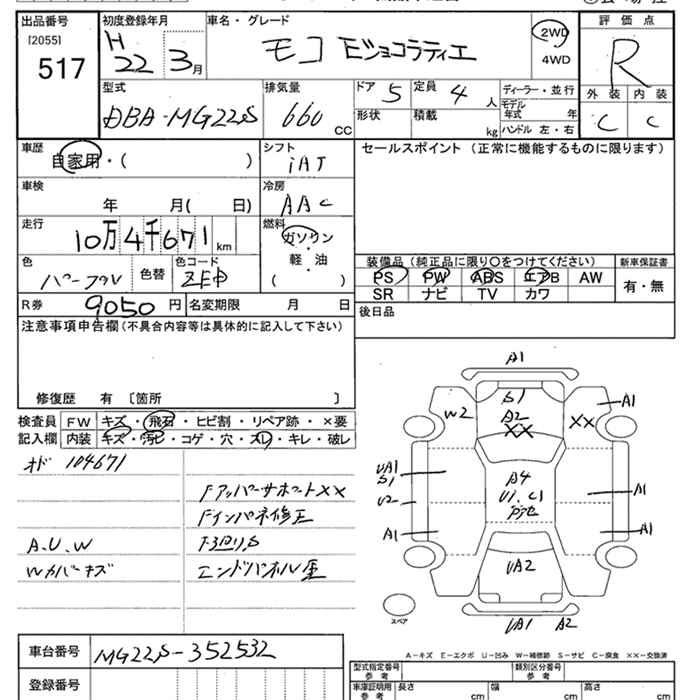 出品番号
[2055]
517
初度登録年月
H
22 3月
車名・グレード
モコ Eショコラティエ
2WD
4WD
評価点
R
外装 内装
C C
型式
DBA-MG22S
排気量
660 CC
ドア 5
定員 4 人
形状
積載 kg
ディーラー・並行
モデル年式 年
ハンドル 左・右
車歴
自家用・( )
シフト
iAT
セールスポイント (正常に機能するものに限ります)
車検
年 月( 日)
冷房
AAC
走行
10万4千671 km
燃料
ガソリン
軽・油
( )
色
パープル
色替
色コード
ZEP
装備品(純正品に限り○をつけてください)
PS PW ABS エアB AW
SR ナビ TV カワ
新車保証書
有・無
R券 9050 円
名変期限 月 日
後日品
注意事項申告欄(不具合内容等は具体的に記入して下さい)
修復歴 有 〔箇所 〕
検査員
記入欄
FW キズ・飛石・ヒビ割・リペア跡・×要
内装 キズ・汚ヒ・コゲ・穴・スレ・キレ・破レ
オド 104671
FアッパーサポートXX
Fインパネ修正
A.U.W
Wカバーキズ
エンドパネル歪
A1
S1
A2
XX
W2
XX
A1
UA1
S1
U2
A1
A4
U1.C1
A1
A1
UA2
UA1 A2
スペア
A-キズ E-エクボ U-凹み W-補修跡 S-サビ C-腐食 XX-交換済
車台番号
MG22S-352532
登録番号
型式指定番号
参考
類別区分番号
参考
車庫証明用
参考
長さ cm
幅 cm
高さ cm